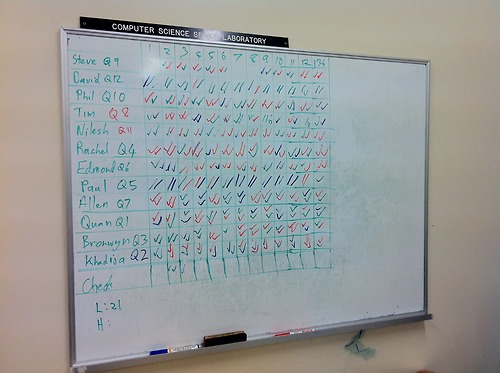 COMPUTER SCIENCE LABORATORY
1 2 3 4 5 6 7 8 9 10 11 12
Steve Q9
David Q12
Phil Q10
Tim Q8
Nilesh Q11
Rachel Q4
Edmond Q6
Paul Q5
Allen Q7
Quan Q1
Bronwyn Q3
Khadija Q2
Check
L: 21
H: